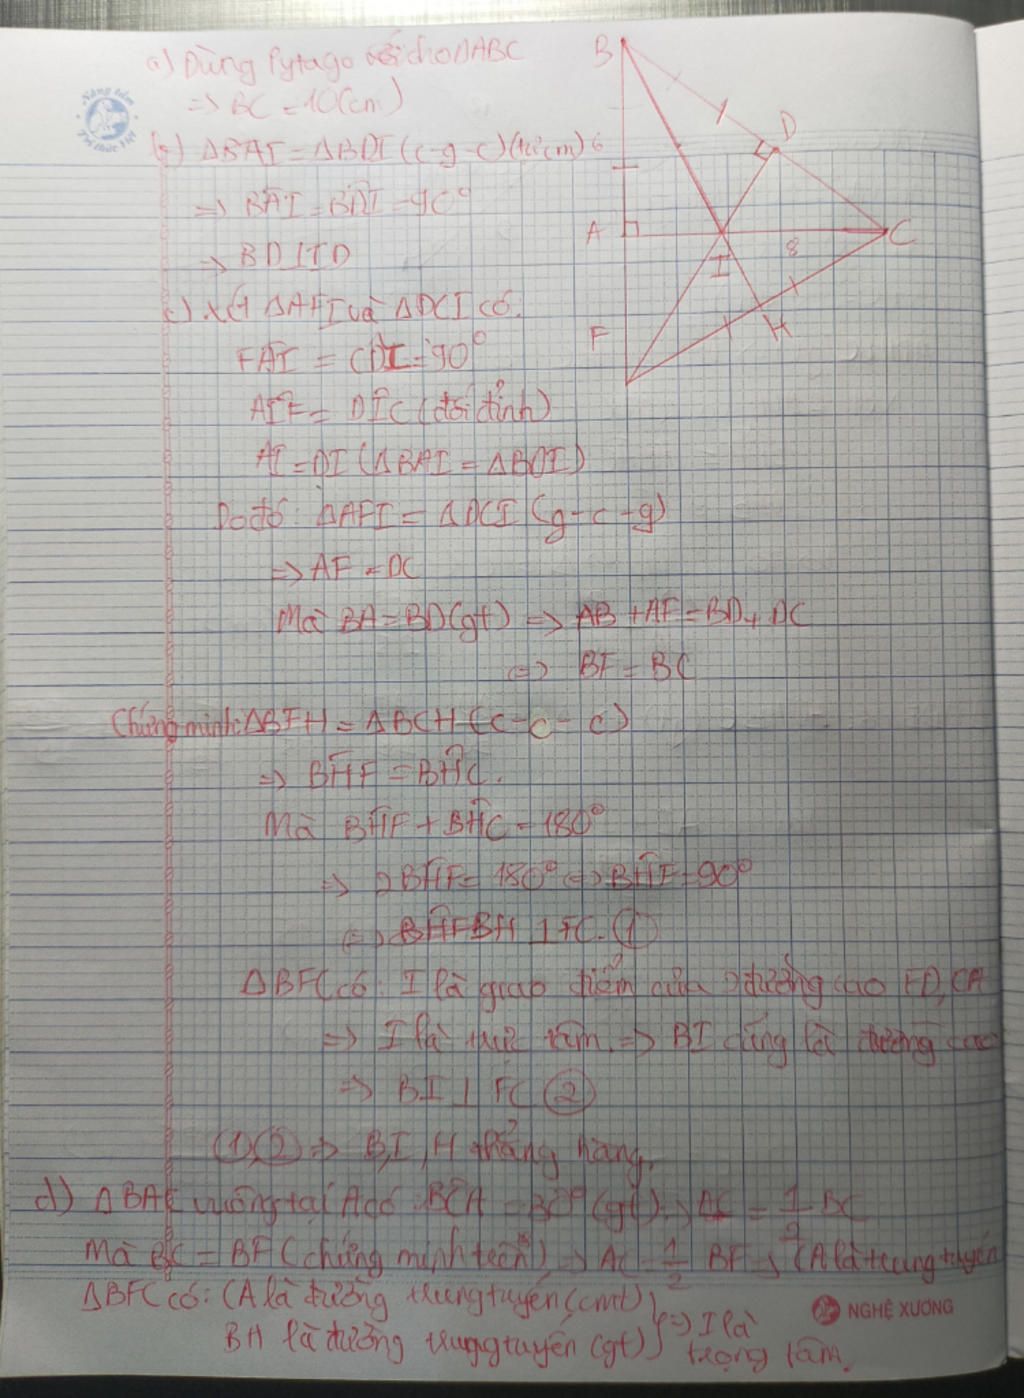 a) Dùng Pytago cho ΔABC
=> BC = 10(cm)
b) ΔBAI = ΔBDI (c-g-c) (tự cm)
=> BÂI = BD̂I = 90°
=> BD⊥ID
c) Xét ΔAFI và ΔDCI có:
FÂI = CD̂I = 90°
AÎF = DÎC (đối đỉnh)
AI = DI (ΔBAI = ΔBDI)
Do đó: ΔAFI = ΔDCI (g-c-g)
=> AF = DC
Mà BA = BD(gt) => AB + AF = BD + DC
<=> BF = BC
Chứng minh: ΔBFH = ΔBCH (c-c-c)
=> BĤF = BĤC.
Mà BĤF + BĤC = 180°
=> 2BĤF = 180° <=> BĤF = 90°
<=> BH ⊥ FC. (1)
ΔBFC có: I là giao điểm của 2 đường cao FD, CA
=> I là trực tâm. => BI cũng là đường cao
=> BI ⊥ FC (2)
(1)(2) => B, I, H thẳng hàng.
d) ΔBAC vuông tại A có: BĈA = (gt) => AC = 1/2 BC
Mà BC = BF (chứng minh trên) => AC = 1/2 BF => CA là trung tuyến
ΔBFC có: CA là đường trung tuyến (cmt)
BH là đường trung tuyến (gt)
=> I là trọng tâm.
B
D
6
A
I
8
C
F
H
Nâng tầm
Tri thức Việt
NGHỆ XƯƠNG